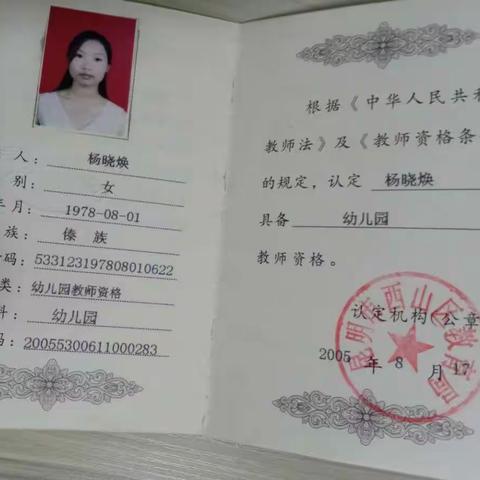 人： 杨晓焕
别： 女
年月： 1978-08-01
族： 傣 族
码： 533123197808010622
类： 幼儿园教师资格
科： 幼儿园
码： 20055300611000283
根据《中华人民共和
教师法》及《教师资格条
的规定，认定 杨晓焕
具备 幼儿园
教师资格。
认定机构（公章
2005 年 8 月 17
昆明市西山区教育局